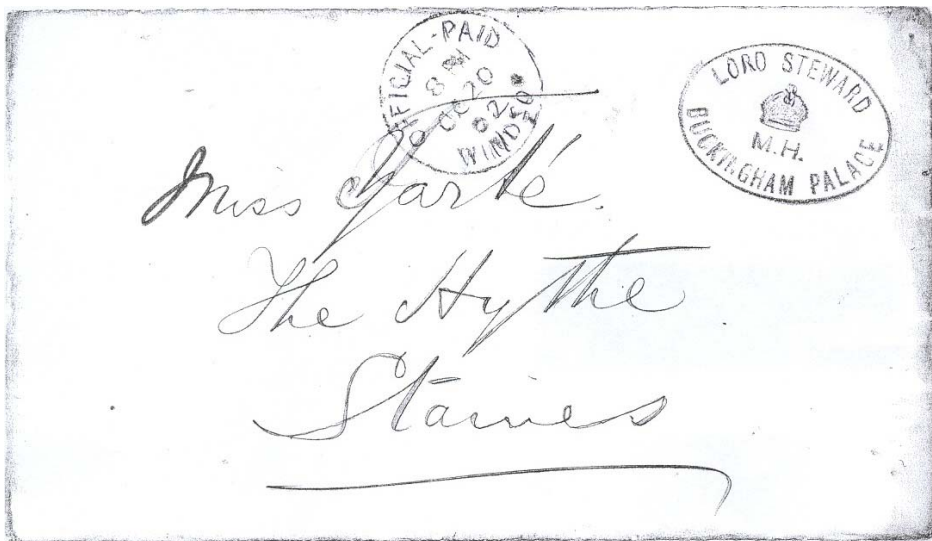 OFFICIAL-PAID
8 PM
OC 20
02
WINDSOR
LORD STEWARD
M.H.
BUCKINGHAM PALACE
Miss
The Hythe
Staines